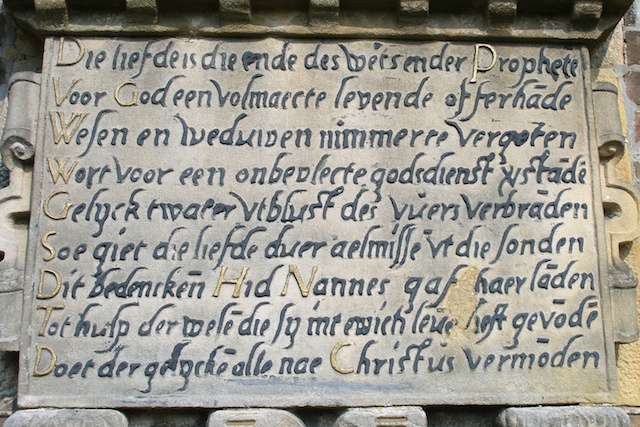 Die liefde is die ende des wets ender Prophete
Voor God een volmaecte levende offerhāde
Wesen en weduwen nimmerre vergeten
Wort voor een onbevlecte godsdienst ystādē
Gelyck twater utblust des vuers verbrāden
Soe giet die liefde duer aelmissē ut die sonden
Dit bedencken Hid Nannes gaf haer lāden
Tot hulp der wesē die sy int ewich leuē heft gevōdē
Doet der gelyckē alle nae Christus vermōden